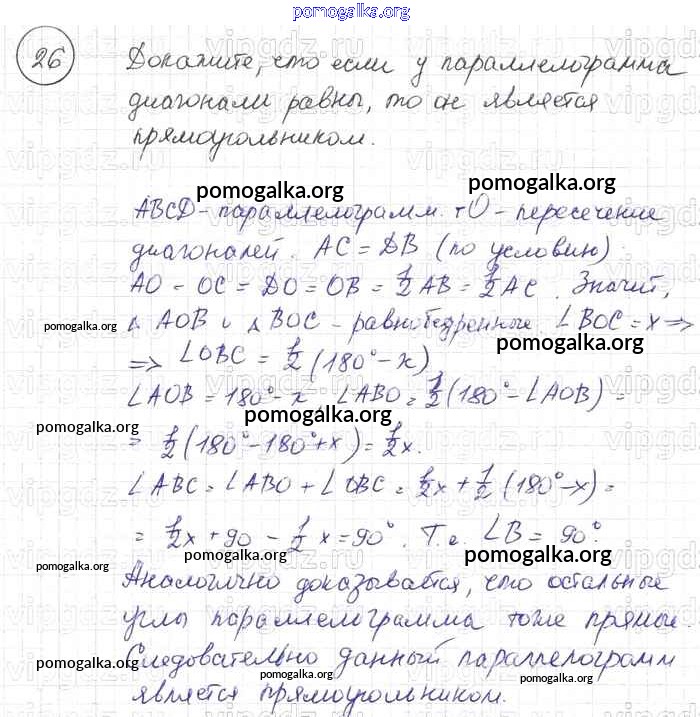 pomogalka.org
26 Докажите, что если у параллелограмма
диагонали равны, то он является
прямоугольником.
pomogalka.org pomogalka.org
ABCD - параллелограмм. т O - пересечение
диагоналей. AC = DB (по условию)
AO = OC = DO = OB = 1/2 AB = 1/2 AC. Значит,
pomogalka.org
Δ AOB и Δ BOC - равнобедренные. ∠BOC = x ⇒
pomogalka.org
⇒ ∠OBC = 1/2 (180° - x)
∠AOB = 180° - x, ∠ABO = 1/2 (180° - ∠AOB) =
pomogalka.org
pomogalka.org
= 1/2 (180° - 180° + x) = 1/2 x.
∠ABC = ∠ABO + ∠OBC = 1/2 x + 1/2 (180° - x) =
= 1/2 x + 90 - 1/2 x = 90°. Т.е. ∠B = 90°.
pomogalka.org
pomogalka.org
Аналогично доказывается, что остальные
углы параллелограмма тоже прямые.
pomogalka.org
Следовательно данный параллелограмм
pomogalka.org
является прямоугольником.
pomogalka.org
pomogalka.org